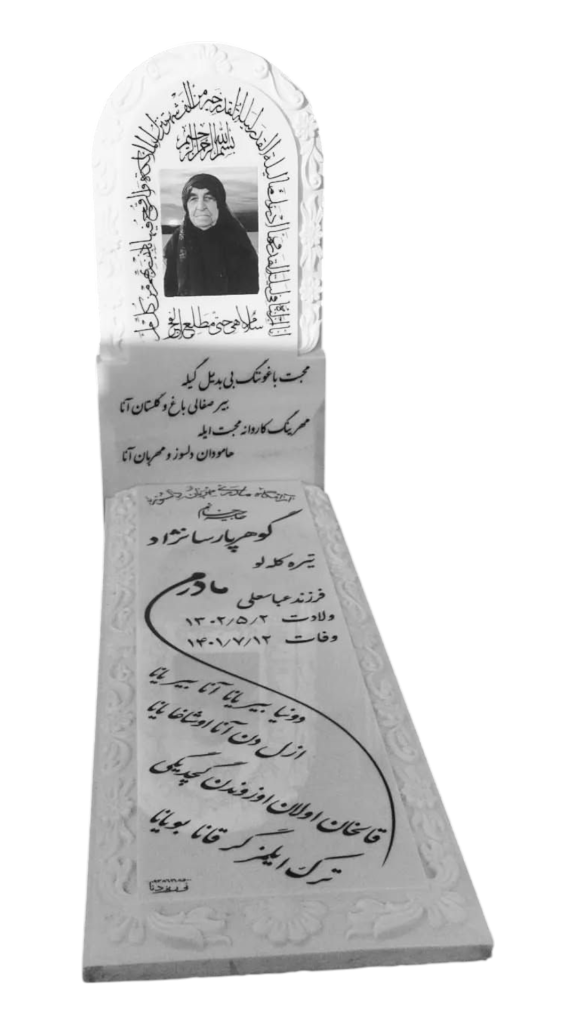 بسم الله الرحمن الرحیم
انا انزلناه فی لیلة القدر وما ادراک ما لیلة القدر لیلة القدر خیر من الف شهر تنزل الملائکة والروح فیها باذن ربهم من کل امر
سلام هی حتی مطلع الفجر
محبت باغونگ بی بدیل گیله
بیر صفالی باغ و گلستان آنا
مهرینگ کاروانه محبت ایله
هامودان دلسوز و مهربان آنا
آرامگاه مادری مهربان و دلسوز
حاجیه خانم
گوهر پارسا نژاد
تیره کله لو
مادرم
فرزند عباسعلی
ولادت ۱۳۰۲/۵/۲
وفات ۱۴۰۱/۷/۱۲
دونیا بیر یانا آنا بیر یانا
ازل دن آنا اوشاخا یانا
قالخان اولان اوزوندن گچدیگی
ترک ایلمز گر قانا بویانا